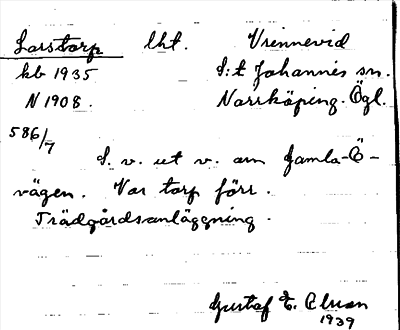 Larstorp lht. Vrinnevid
kb 1935 S:t Johannis sn.
N 1908. Norrköping. Ögl.
586/7
S. v. ut v. om Gamla-Ö-
vägen. Var torp förr.
Trädgårdsanläggning.
Gustaf E. Olson
1939